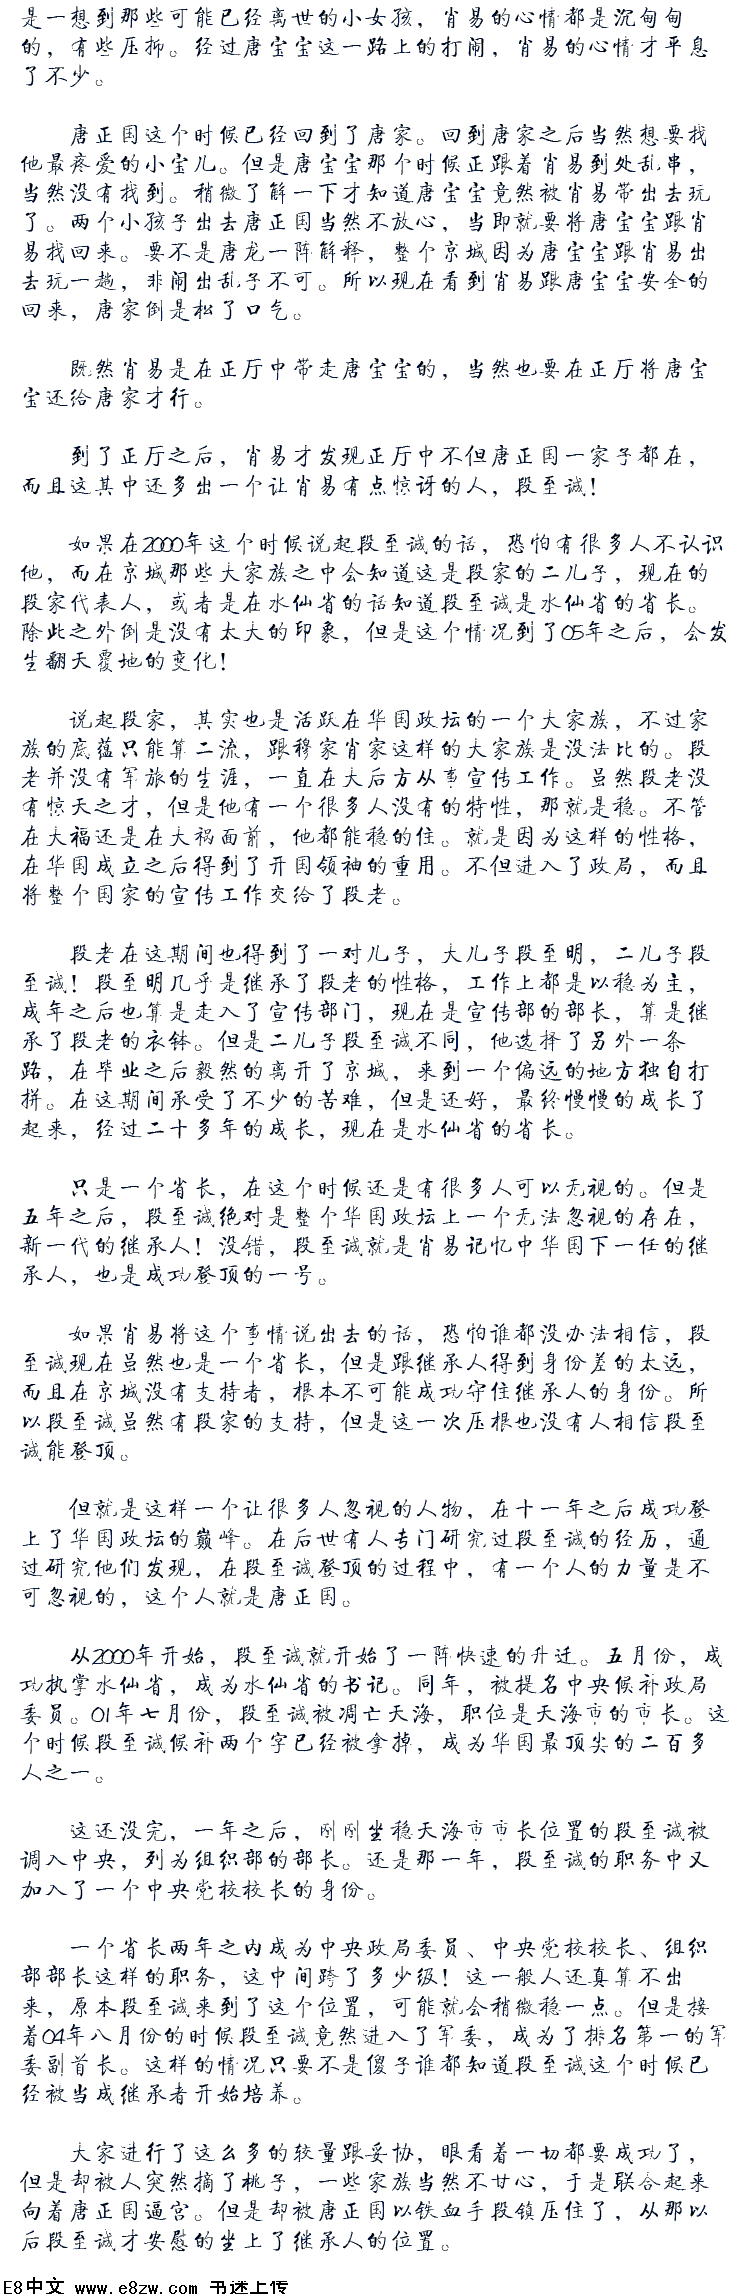 是一想到那些可能已经离世的小女孩，肖易的心情都是沉甸甸
的，有些压抑。经过唐宝宝这一路上的打闹，肖易的心情才平息
了不少。
唐正国这个时候已经回到了唐家。回到唐家之后当然想要找
他最疼爱的小宝儿。但是唐宝宝那个时候正跟着肖易到处乱串，
当然没有找到。稍微了解一下才知道唐宝宝竟然被肖易带出去玩
了。两个小孩子出去唐正国当然不放心，当即就要将唐宝宝跟肖
易找回来。要不是唐龙一阵解释，整个京城因为唐宝宝跟肖易出
去玩一趟，非闹出乱子不可。所以现在看到肖易跟唐宝宝安全的
回来，唐家倒是松了口气。
既然肖易是在正厅中带走唐宝宝的，当然也要在正厅将唐宝
宝还给唐家才行。
到了正厅之后，肖易才发现正厅中不但唐正国一家子都在，
而且这其中还多出一个让肖易有点惊讶的人，段至诚！
如果在2000年这个时候说起段至诚的话，恐怕有很多人不认识
他，而在京城那些大家族之中会知道这是段家的二儿子，现在的
段家代表人，或者是在水仙省的话知道段至诚是水仙省的省长。
除此之外倒是没有太大的印象，但是这个情况到了05年之后，会发
生翻天覆地的变化！
说起段家，其实也是活跃在华国政坛的一个大家族，不过家
族的底蕴只能算二流，跟穆家肖家这样的大家族是没法比的。段
老并没有军旅的生涯，一直在大后方从事宣传工作。虽然段老没
有惊天之才，但是他有一个很多人没有的特性，那就是稳。不管
在大福还是在大祸面前，他都能稳的住。就是因为这样的性格，
在华国成立之后得到了开国领袖的重用。不但进入了政局，而且
将整个国家的宣传工作交给了段老。
段老在这期间也得到了一对儿子，大儿子段至明，二儿子段
至诚！段至明几乎是继承了段老的性格，工作上都是以稳为主，
成年之后也算是走入了宣传部门，现在是宣传部的部长，算是继
承了段老的衣钵。但是二儿子段至诚不同，他选择了另外一条
路，在毕业之后毅然的离开了京城，来到一个偏远的地方独自打
拼。在这期间承受了不少的苦难，但是还好，最终慢慢的成长了
起来，经过二十多年的成长，现在是水仙省的省长。
只是一个省长，在这个时候还是有很多人可以无视的。但是
五年之后，段至诚绝对是整个华国政坛上一个无法忽视的存在，
新一代的继承人！没错，段至诚就是肖易记忆中华国下一任的继
承人，也是成功登顶的一号。
如果肖易将这个事情说出去的话，恐怕谁都没办法相信，段
至诚现在虽然也是一个省长，但是跟继承人得到身份差的太远，
而且在京城没有支持者，根本不可能成功守住继承人的身份。所
以段至诚虽然有段家的支持，但是这一次压根也没有人相信段至
诚能登顶。
但就是这样一个让很多人忽视的人物，在十一年之后成功登
上了华国政坛的巅峰。在后世有人专门研究过段至诚的经历，通
过研究他们发现，在段至诚登顶的过程中，有一个人的力量是不
可忽视的，这个人就是唐正国。
从2000年开始，段至诚就开始了一阵快速的升迁。五月份，成
功执掌水仙省，成为水仙省的书记。同年，被提名中央候补政局
委员。01年七月份，段至诚被凋亡天海，职位是天海市的市长。这
个时候段至诚候补两个字已经被拿掉，成为华国最顶尖的二百多
人之一。
这还没完，一年之后，刚刚坐稳天海市市长位置的段至诚被
调入中央，列为组织部的部长。还是那一年，段至诚的职务中又
加入了一个中央党校校长的身份。
一个省长两年之内成为中央政局委员、中央党校校长、组织
部部长这样的职务，这中间跨了多少级！这一般人还真算不出
来，原本段至诚来到了这个位置，可能就会稍微稳一点。但是接
着04年八月份的时候段至诚竟然进入了军委，成为了排名第一的军
委副首长。这样的情况只要不是傻子谁都知道段至诚这个时候已
经被当成继承者开始培养。
大家进行了这么多的较量跟妥协，眼看着一切都要成功了，
但是却被人突然摘了桃子，一些家族当然不甘心，于是联合起来
向着唐正国逼宫。但是却被唐正国以铁血手段镇压住了，从那以
后段至诚才安慰的坐上了继承人的位置。
E8中文 www.e8zw.com 书迷上传